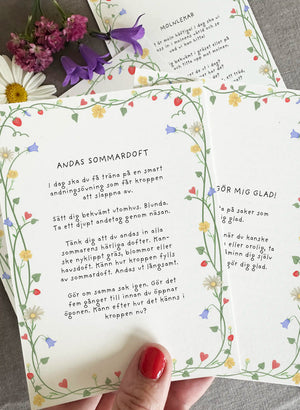 MOLNLEKAR
ANDAS SOMMARDOFT
I dag ska du få träna på en smart
andningsövning som får kroppen
att slappna av.
Sätt dig bekvämt utomhus. Blunda.
Ta ett djupt andetag genom näsan.
Tänk dig att du andas in alla
sommarens härliga dofter. Kan-
ske nyklippt gräs, blommor eller
havsdoft. Känn hur kroppen fylls
av sommardoft. Andas ut långsamt.
Gör om samma sak igen. Gör det
fem gånger till innan du öppnar
ögonen. Känn efter hur det känns i
kroppen nu?
GÖR MIG GLAD!
på saker som
glad.
när du kanske
eller orolig,
dig själv
gör dig glad.